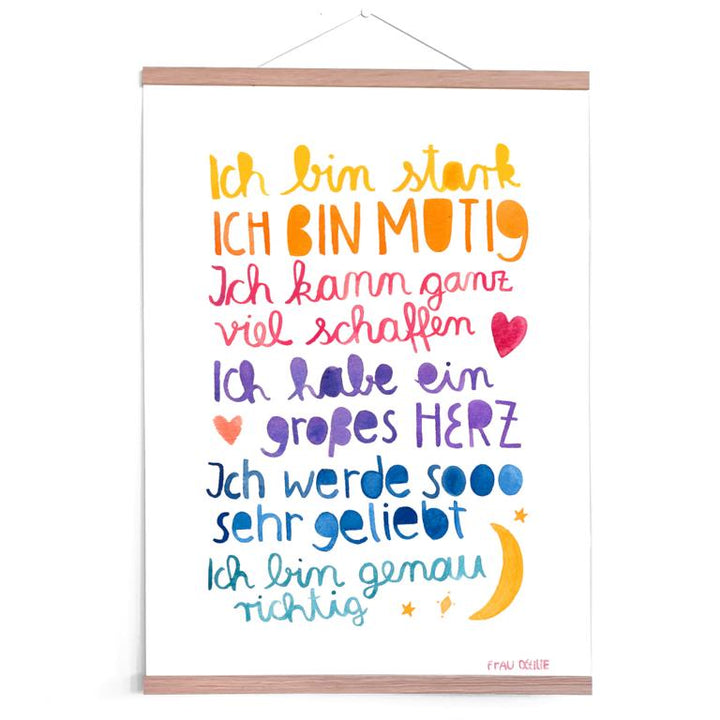 Ich bin stark
ICH BIN MUTIG
Ich kann ganz
viel schaffen
Ich habe ein
großes HERZ
Ich werde sooo
sehr geliebt
Ich bin genau
richtig
FRAU